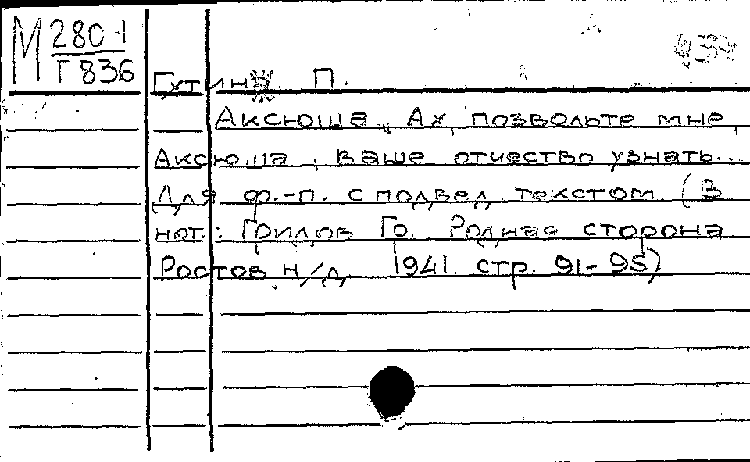 М 280-1
Г 836
434
Гутин П.
Аксюша. Ах, позвольте мне,
Аксюша, ваше отчество узнать...
Для ф.-п. с подвед. текстом (В
нот.: Гоилов Го. Родная сторона
Ростов н/Д, 1941 стр. 91-95)